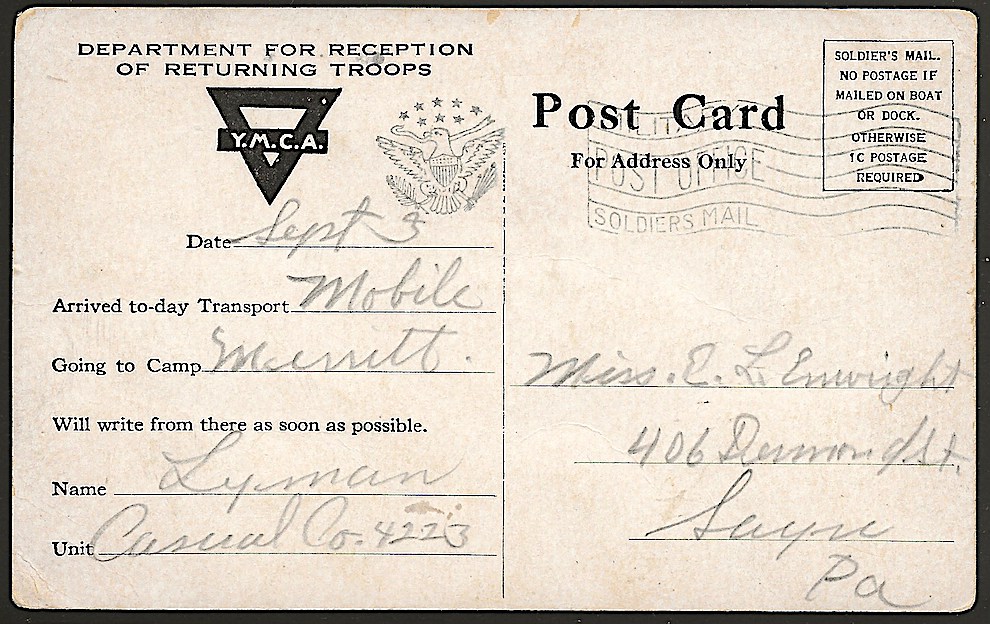 DEPARTMENT FOR RECEPTION
OF RETURNING TROOPS
Y.M.C.A.
Date Sept 3
Arrived to-day Transport Mobile
Going to Camp Merritt.
Will write from there as soon as possible.
Name Lyman
Unit Casual Co. 4223
Post Card
For Address Only
SOLDIER'S MAIL.
NO POSTAGE IF
MAILED ON BOAT
OR DOCK.
OTHERWISE
1C POSTAGE
REQUIRED
POST OFFICE
SOLDIERS MAIL
Miss. E. L. Enwright
406 Desmond St.
Sayre
Pa